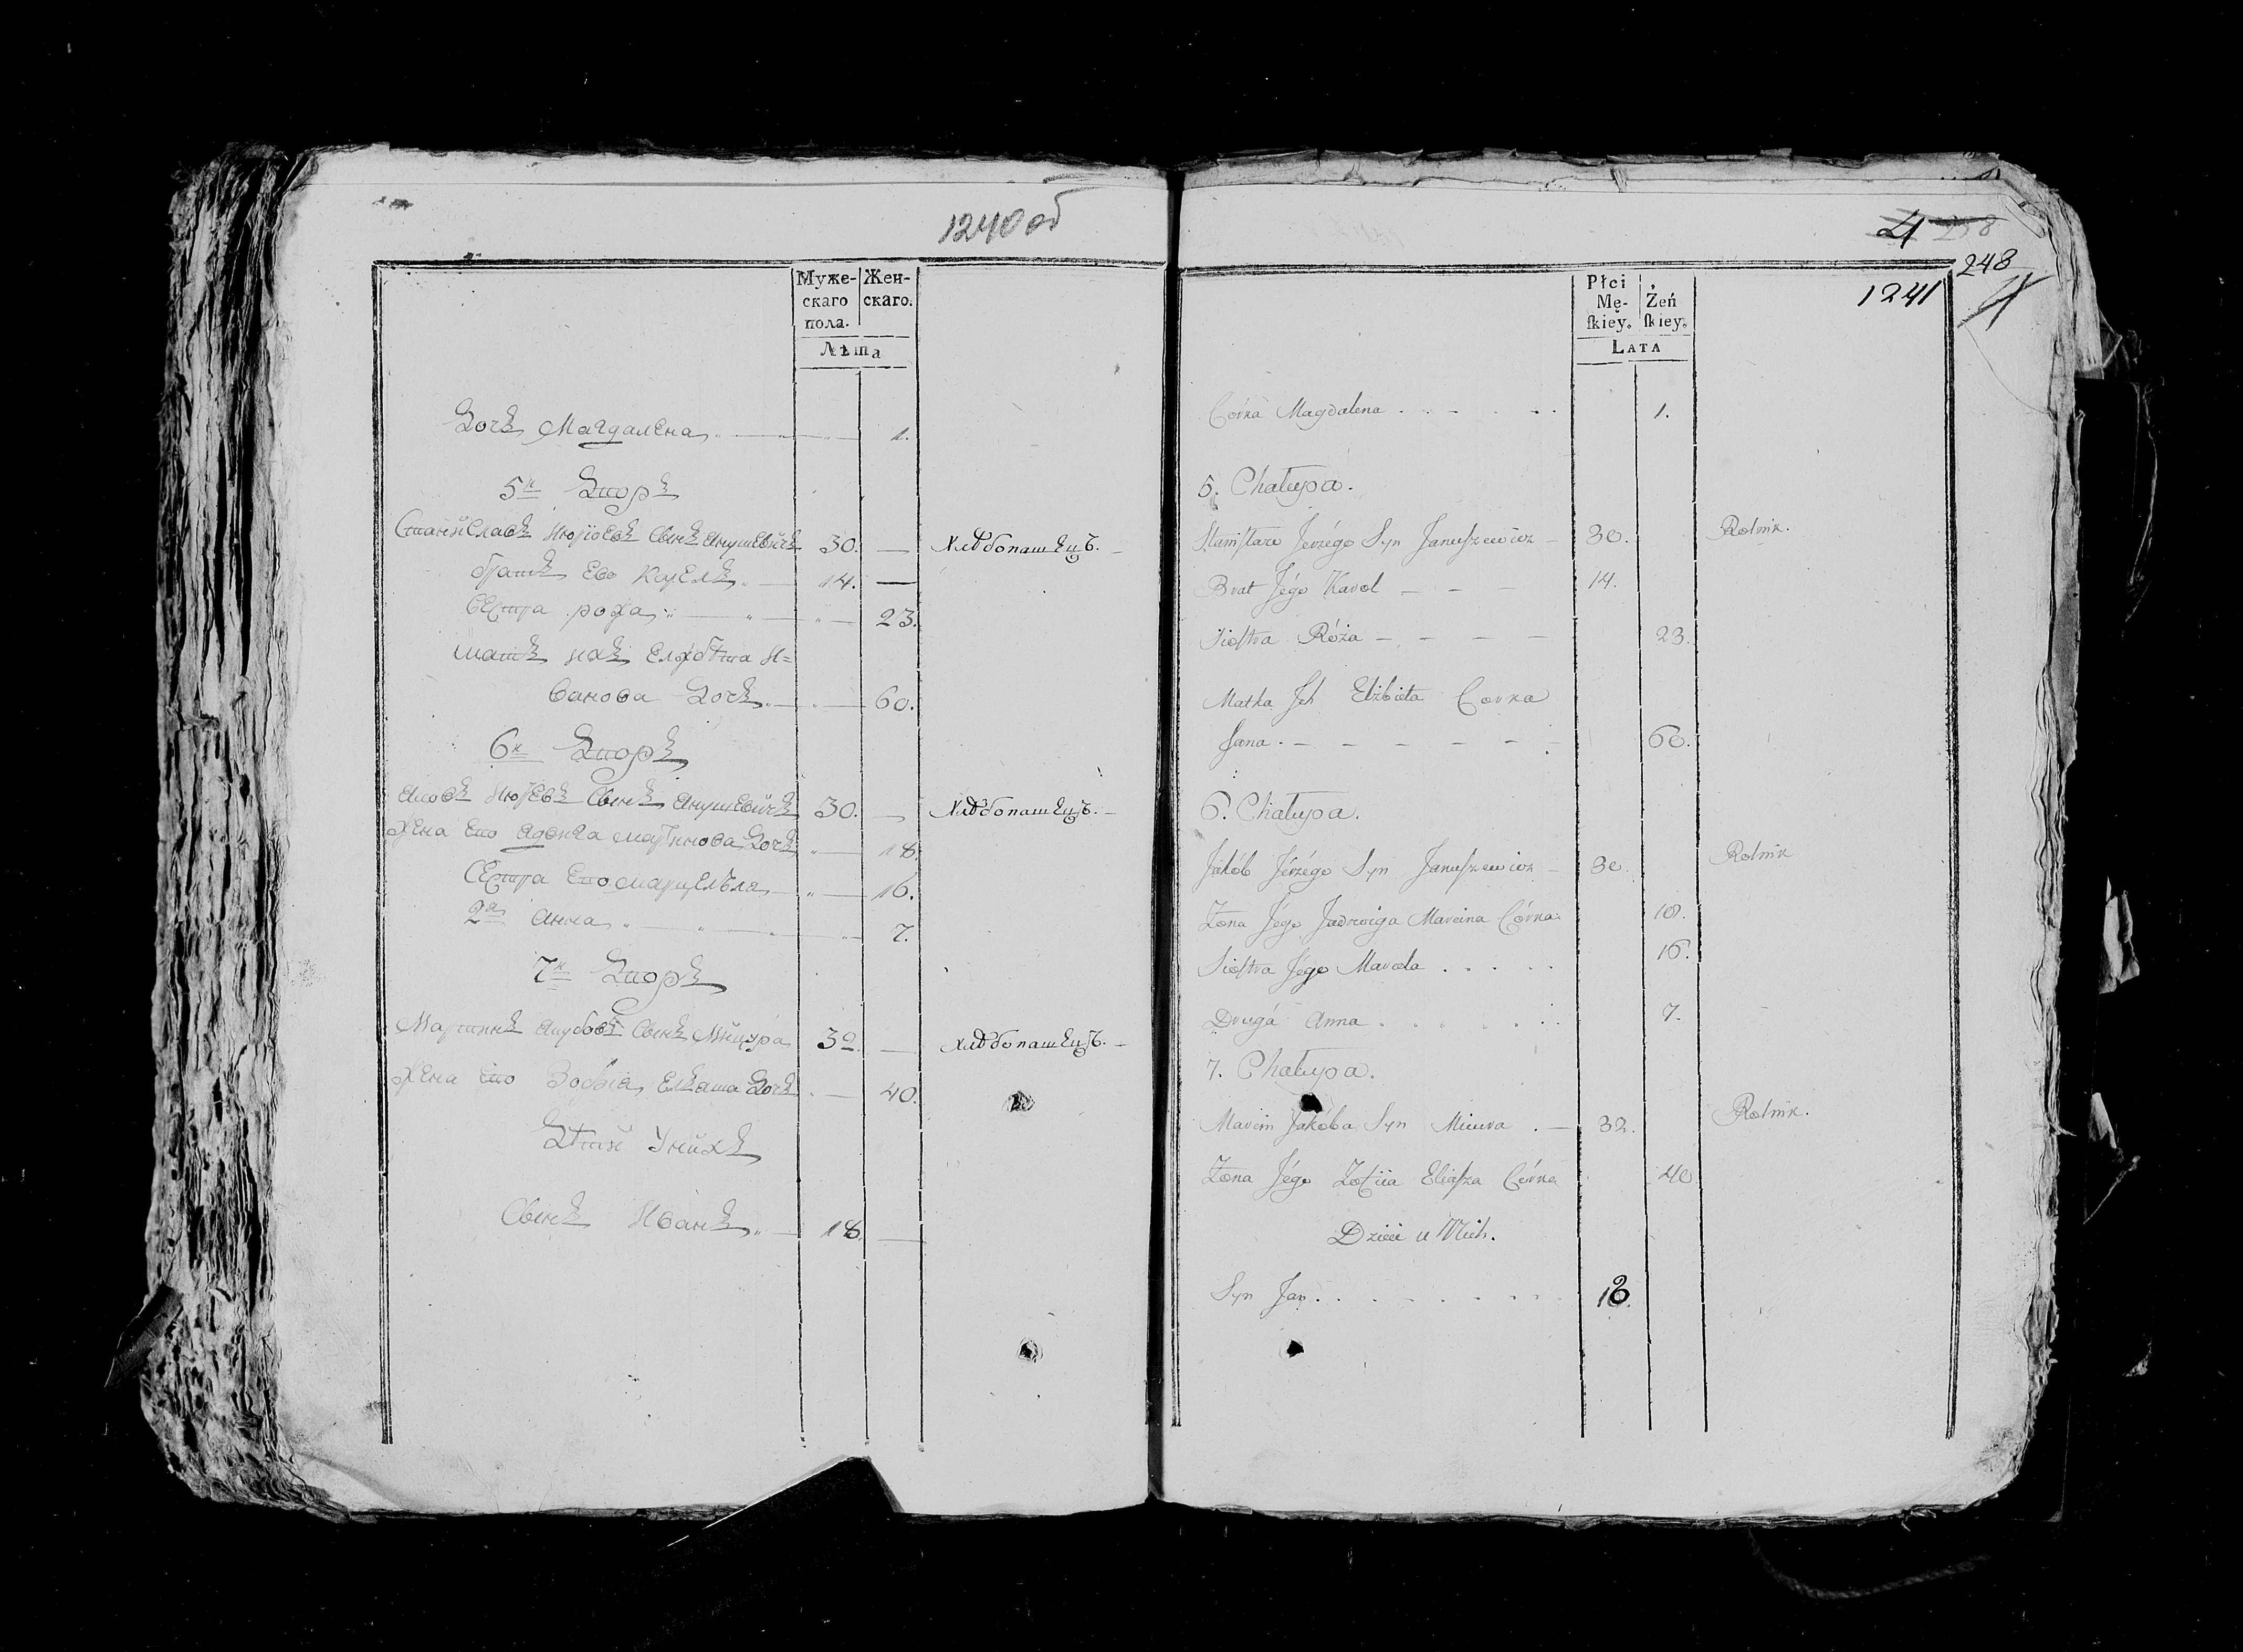 1240об
Муже-
скаго
пола.
Жен-
скаго.
Лѣта
Дочъ Магдалена 1.
5й Дворъ
Станиславъ Июріевъ Сынъ Янушевичъ 30. — Хлѣбопашецъ. —
братъ Его Карелъ 14. —
Сестра рожа 23.
матъ ихъ Елжбѣта И=
ванова Дочъ 60.
6й Дворъ
Якобъ Июрьевъ Сынъ Янушевичъ 30. — Хлѣбопашецъ. —
Жена Его Ядвига мартинова Дочъ 18.
Сестра Его марцелъла 16.
2я Анна 7.
7й Дворъ
Мартинъ Якубовъ Сынъ Мицура 32 — Хлѣбопашецъ. —
Жена Его Зофыя Елъяша Дочъ 40.
Дѣти У нихъ
Сынъ Иванъ 18. —
4 258
248
1241
Płci
Mę-
ſkiey.
Żeń
ſkiey.
LATA
Corka Magdalena 1.
5. Chałupa.
Staniſław Jerzégo Syn Januſzewicz — 30. Rolnik.
Brat Jégo Karol — — — 14.
Sioſtra Róża — — — — 23.
Matka Jch Elżbieta Corka
Jana. — — — — — — 60.
6. Chałupa.
Jakób Jérzégo Syn Januſzewicz — 30. Rolnik
Zona Jégo Jadwiga Marcina Córka 18.
Sioſtra Jégo Marcela . . . . . 16.
Drugá Anna . . . . . . . 7.
7. Chałupa.
Marcin Jakóba Syn Micura . — 32. Rolnik.
Zona Jégo Zofiia Eliaſza Córka 40
Dzieci u Nich.
Syn Jan . . . . . . . . . 18.